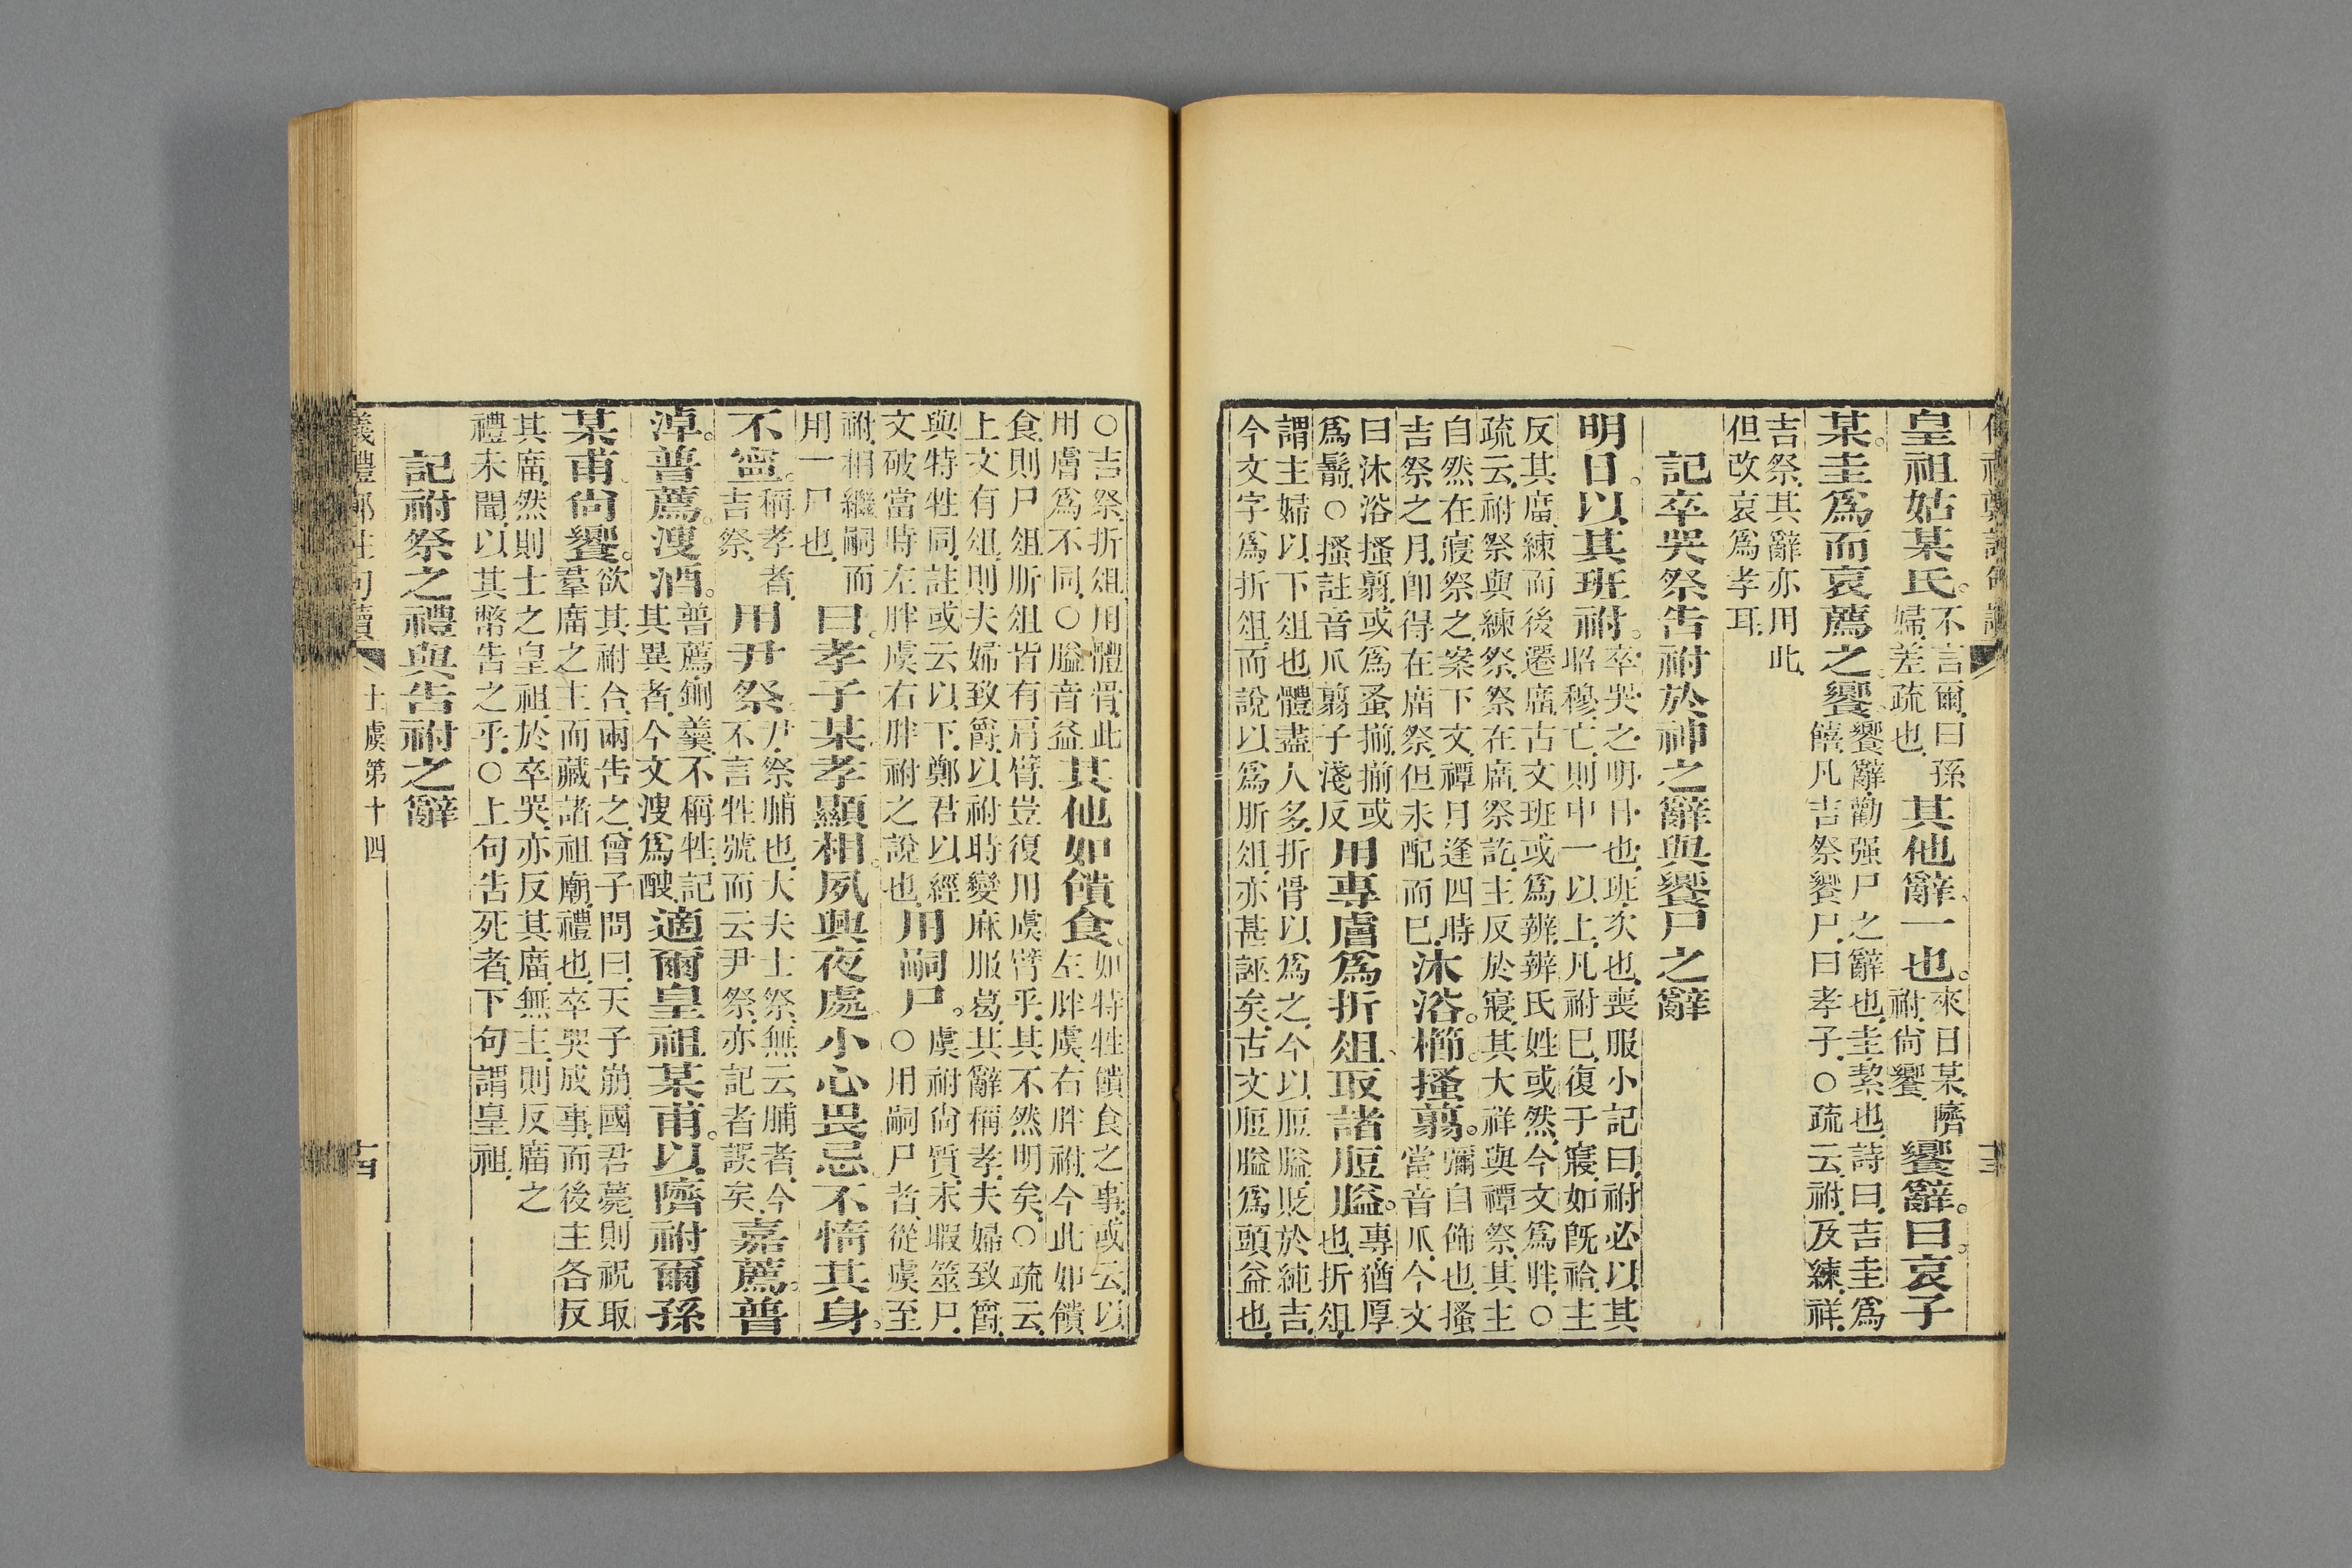 皇祖姑某氏。
不言爾曰孫
婦差疏也
其他辭一也。
來日某隮
祔尙饗
饗辭。曰。哀子
某。圭爲而哀薦之饗。
饗辭勸强尸之辭也圭絜也詩曰吉圭爲
饎凡吉祭饗尸曰孝子○疏云祔及練祥
吉祭其辭亦用此
但改哀爲孝耳
記卒哭祭告祔於神之辭與饗尸之辭
明日。以其班祔。
卒哭之明日也班次也喪服小記曰祔必以其
昭穆亡則中一以上凡祔已復于寢如旣祫主
反其庿練而後遷庿古文班或爲辨辨氏姓或然今文爲胖○
疏云祔祭與練祭祭在庿祭訖主反於寢其大祥與禫祭其主
自然在寢祭之案下文禫月逢四時
吉祭之月卽得在庿祭但未配而已
沐浴。櫛。搔翦。
彌自飾也搔
當音爪今文
曰沐浴搔翦或爲蚤揃揃或
爲鬋○搔註音爪翦子淺反
用專膚爲折俎取諸脰膉。
專猶厚
也折俎
謂主婦以下俎也體盡人多折骨以爲之今以脰膉貶於純吉
今文字爲折俎而說以爲肵俎亦甚誣矣古文脰膉爲頭嗌也
○吉祭折俎用體骨此
用膚爲不同○膉音益
其他如饋食。
如特牲饋食之事或云以
左胖虞右胖祔今此如饋
食則尸俎肵俎皆有肩臂豈復用虞臂乎其不然明矣○疏云
上文有俎則夫婦致爵以祔時變麻服葛其辭稱孝夫婦致爵
與特牲同註或云以下鄭君以經
文破當時左胖虞右胖祔之說也
用嗣尸。
虞祔尙質未暇筮尸
○用嗣尸者從虞至
祔相繼嗣而
用一尸也
曰。孝子某孝顯相夙興夜處小心畏忌不惰其身。
不寧。
稱孝者
吉祭
用尹祭
尹祭脯也大夫士祭無云脯者今
不言牲號而云尹祭亦記者誤矣
嘉薦。普
淖。普薦。溲酒。
普薦鉶羹不稱牲記
其異者今文溲爲醙
適爾皇祖某甫。以隮祔爾孫
某甫尙饗。
欲其祔合兩告之曾子問曰天子崩國君薨則祝取
羣庿之主而藏諸祖廟禮也卒哭成事而後主各反
其庿然則士之皇祖於卒哭亦反其庿無主則反庿之
禮未聞以其幣告之乎○上句告死者下句謂皇祖
記祔祭之禮與告祔之辭
士虞第十四